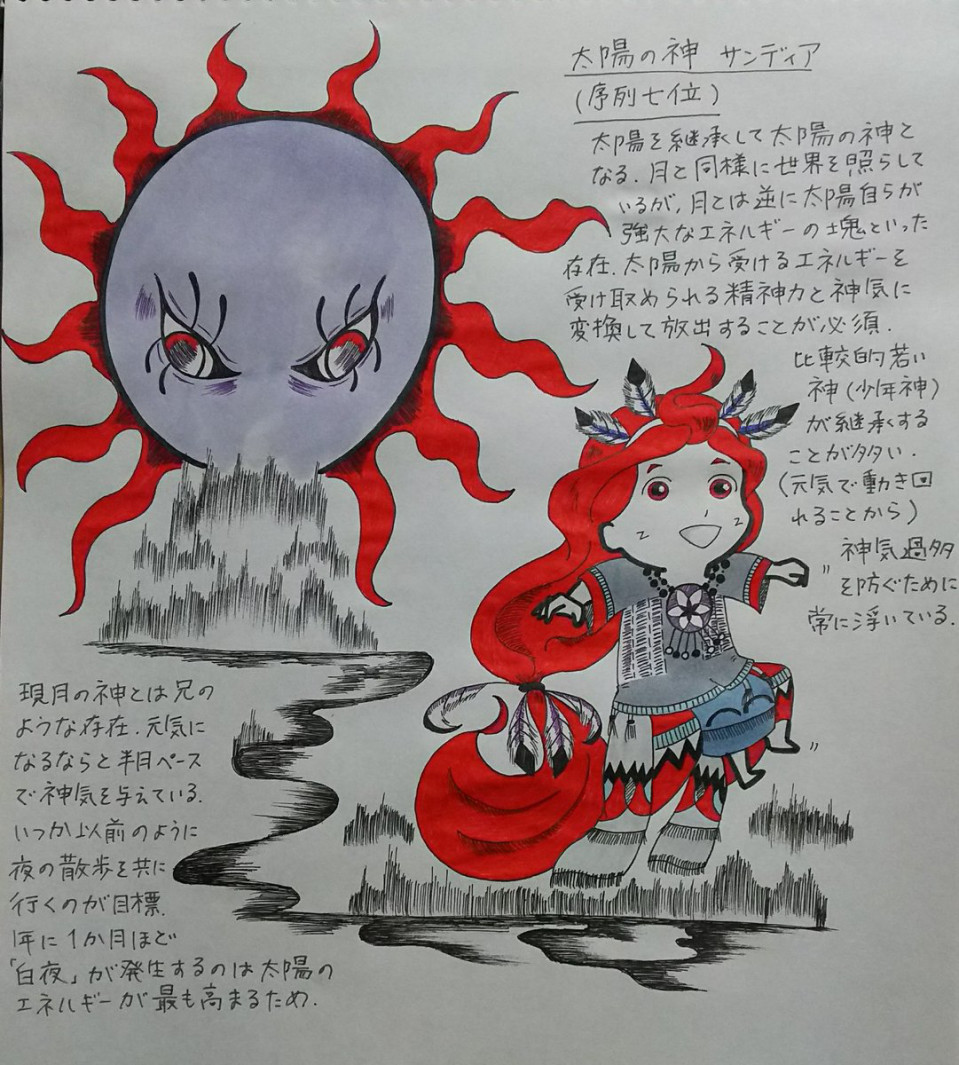 太陽の神 サンディア
(序列七位)
太陽を継承して太陽の神と
なる. 月と同様に世界を照らして
いるが, 月とは逆に太陽自らが
強大なエネルギーの塊といった
存在. 太陽から受けるエネルギーを
受け取められる精神力と神気に
変換して放出することが必須.
比較的若い
神(少年神)
が継承する
ことが多い.
(元気で動き回
れることから)
神気過多
を防ぐために
常に浮いている.
現月の神とは兄の
ような存在. 元気に
なるならと半月ペース
で神気を与えている.
いつか以前のように
夜の散歩を共に
行くのが目標.
1年に1か月ほど
「白夜」が発生するのは太陽の
エネルギーが最も高まるため.